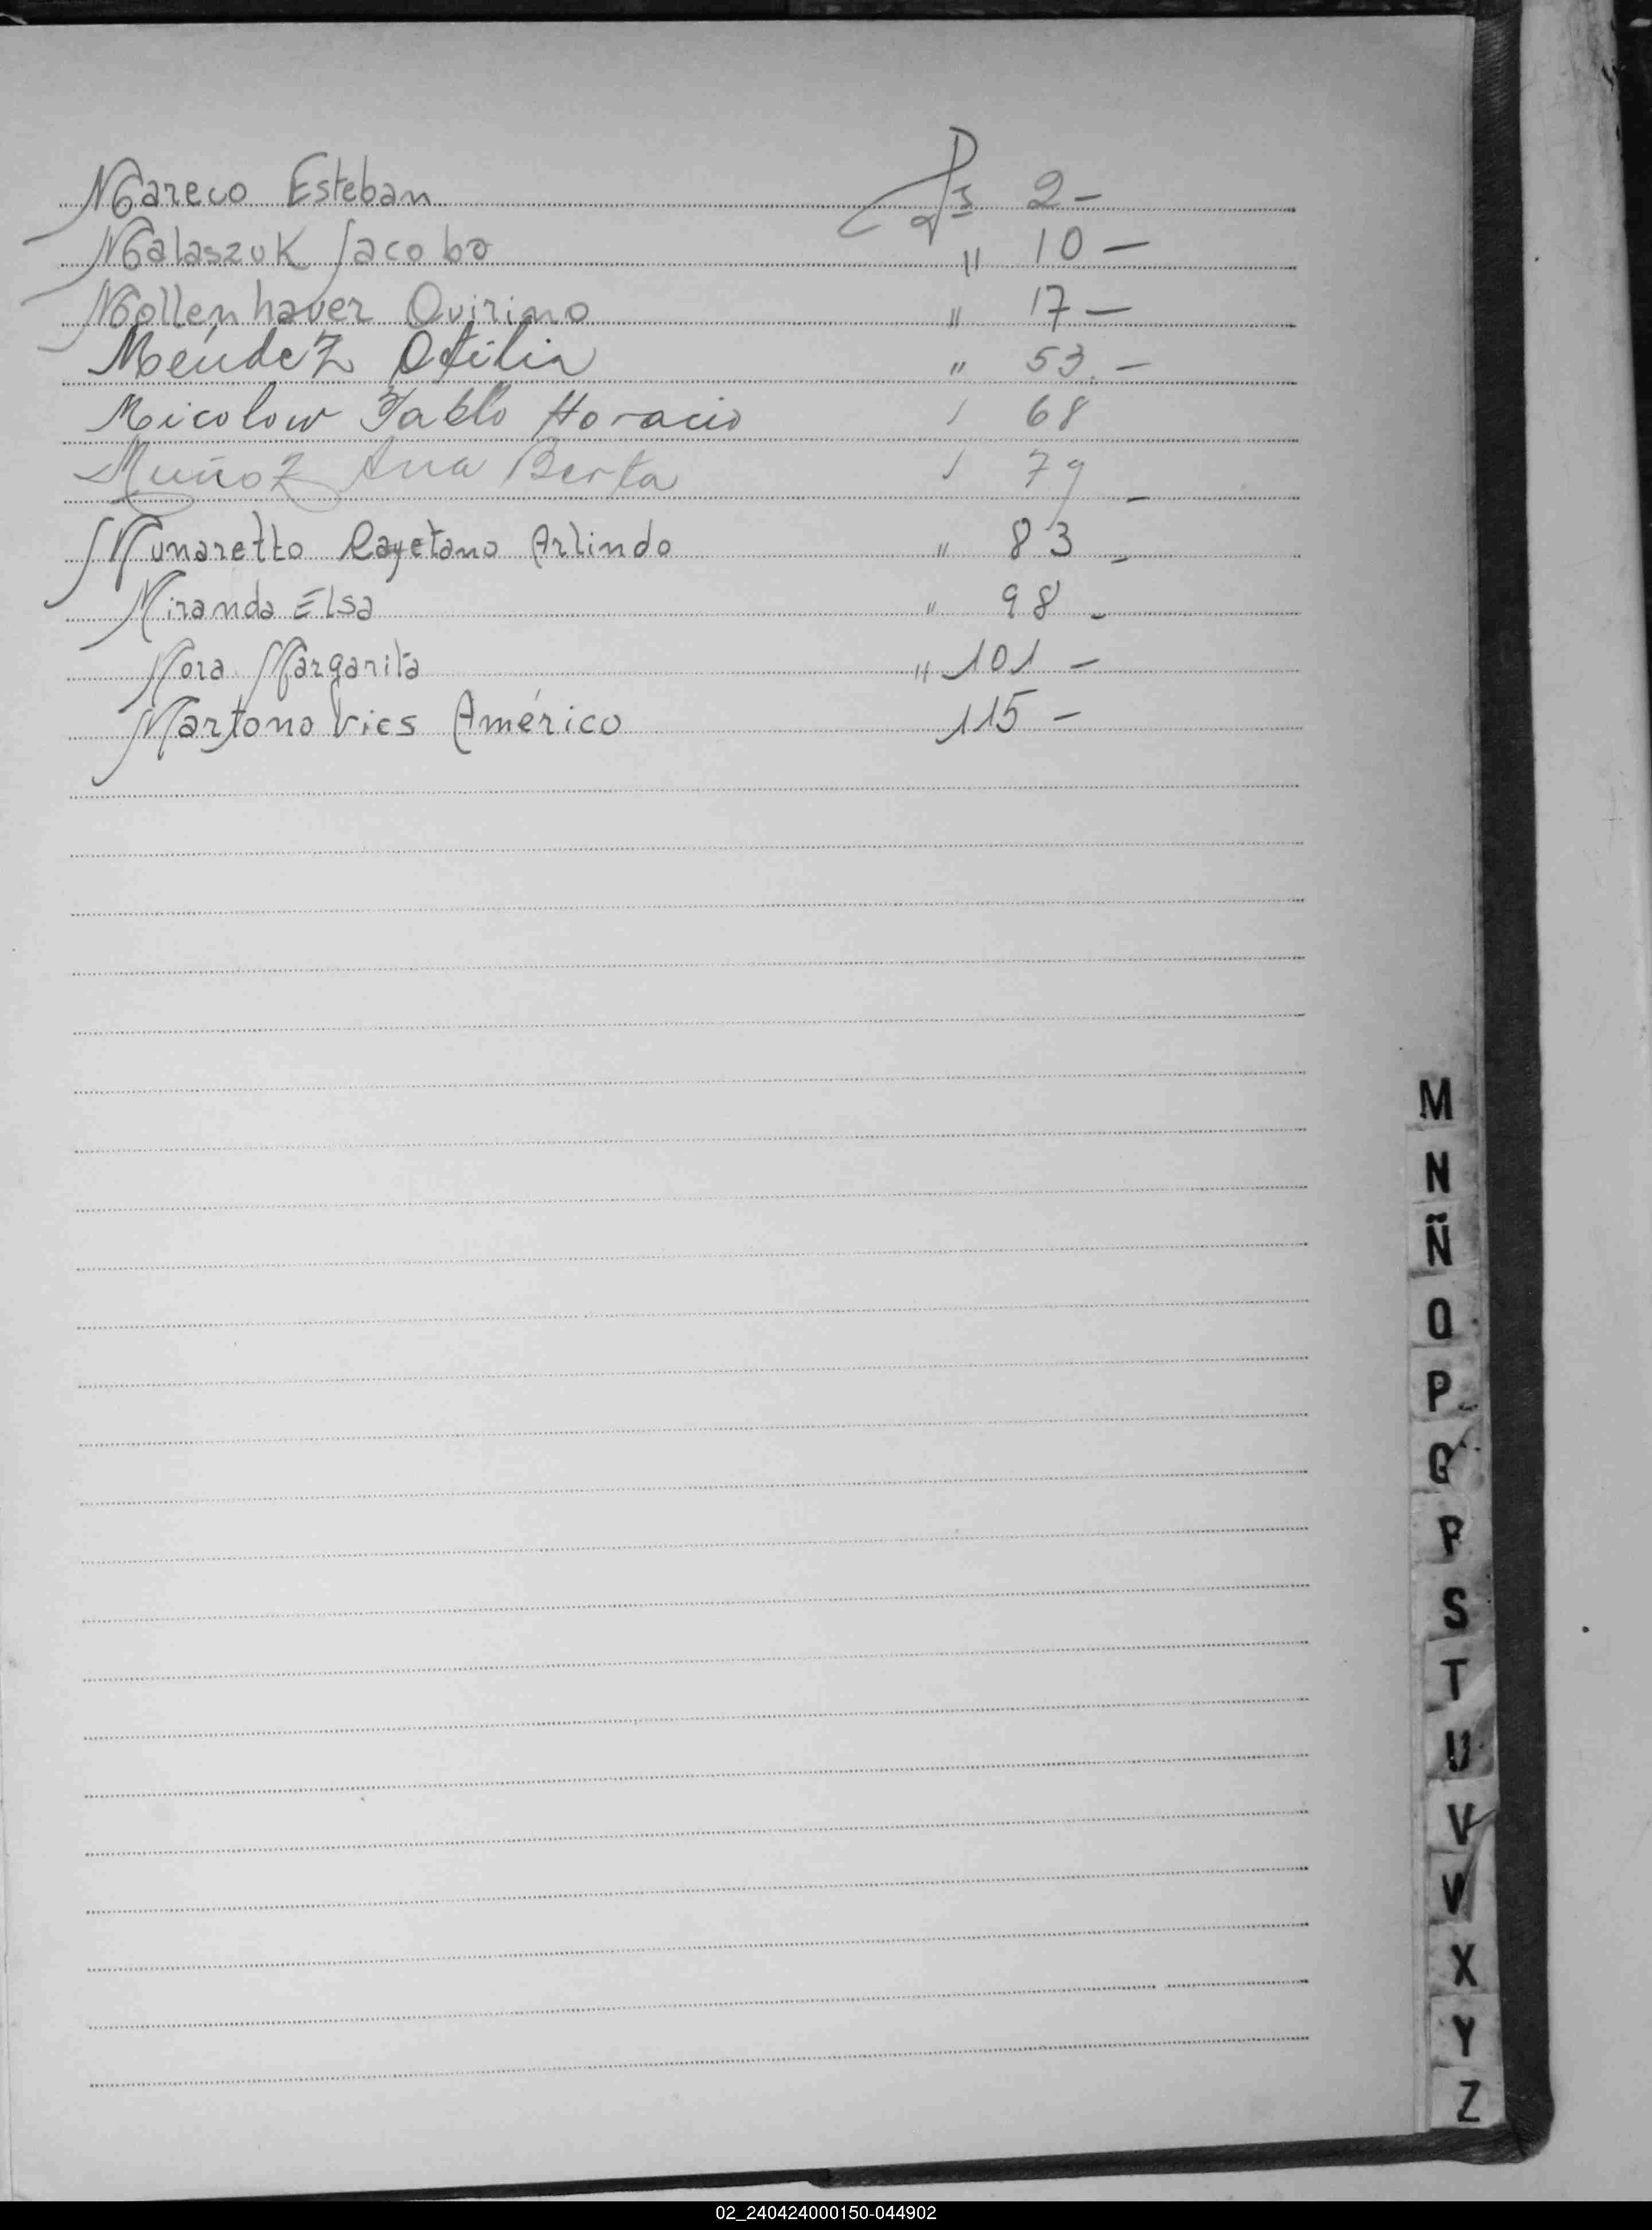 Mareco Esteban Pág 2-
Malaszuk Jacobo " 10 -
Mollenhauer Quirino " 17 -
Méndez Otilia " 53. -
Micolow Pablo Horacio " 68
Muñoz Ana Berta " 79 -
Munaretto Cayetano Arlindo " 83 -
Miranda Elsa " 98 -
Mora Margarita " 101 -
Martonovics Américo 115 -
M
N
Ñ
O
P
Q
R
S
T
U
V
W
X
Y
Z
02_240424000150-044902